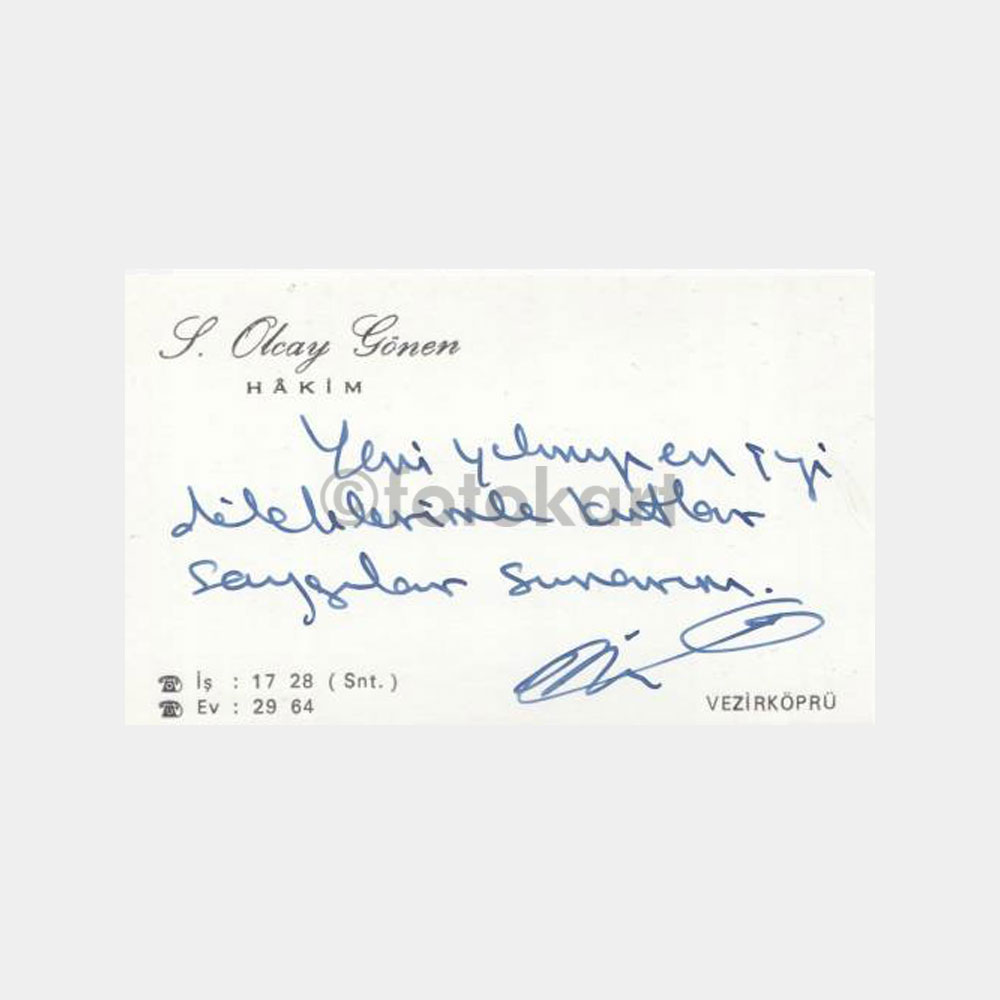 S. Olcay Gönen
HÂKİM
Yeni yılınızı en iyi
dileklerimle kutlar
saygılar sunarım.
©fotokart
☎ İş : 17 28 ( Snt. )
☎ Ev : 29 64
VEZİRKÖPRÜ